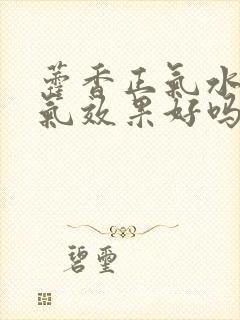 藿香正氣水
氣效果好吗
碧璽